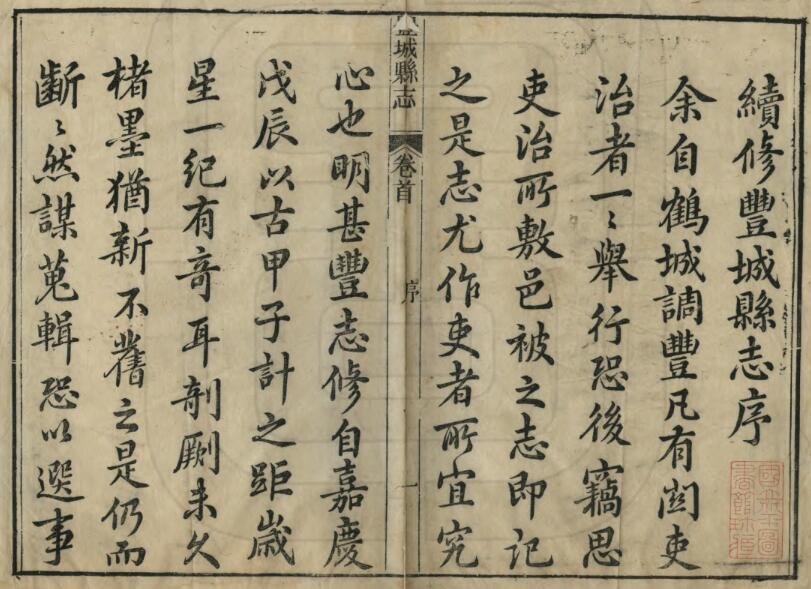 續修豐城縣志序
余自鶴城調豐凡有關吏
治者一〻舉行恐後竊思
吏治所敷邑被之志即記
之是志尤作吏者所宜究
豐城縣志 卷首 序 一
心也明甚豐志修自嘉慶
戊辰以古甲子計之距歲
星一紀有奇耳剞劂未久
楮墨猶新不舊之是仍而
斷〻然謀蒐輯恐以選事